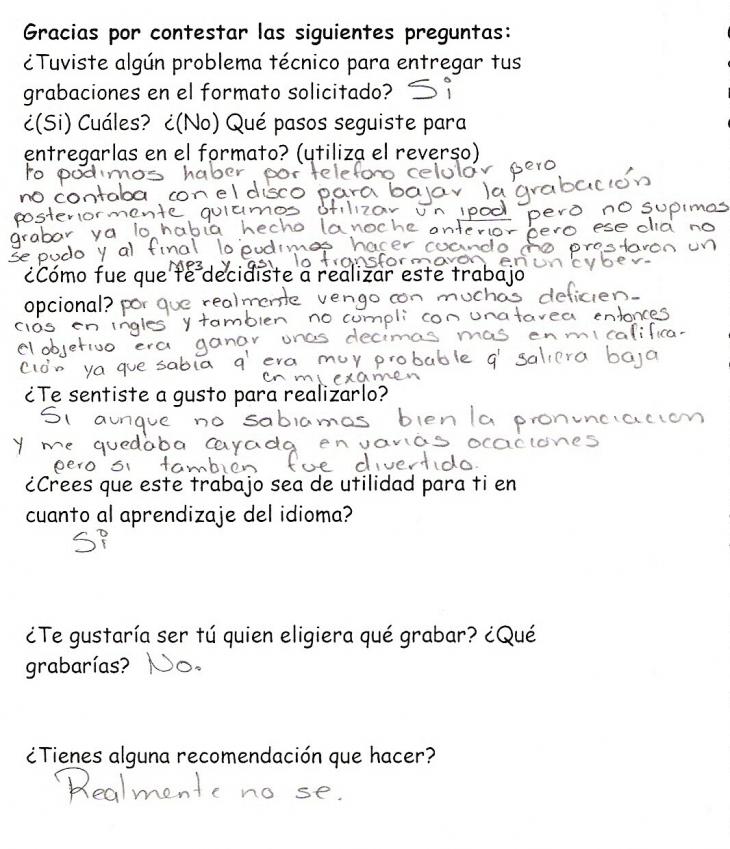 Gracias por contestar las siguientes preguntas:
¿Tuviste algún problema técnico para entregar tus
grabaciones en el formato solicitado? Si
¿(Si) Cuáles? ¿(No) Qué pasos seguiste para
entregarlas en el formato? (utiliza el reverso)
lo podimos haber por telefono celular pero
no contaba con el disco para bajar la grabación
posteriormente quicimos utilizar un ipod pero no supimos
grabar ya lo habia hecho la noche anterior pero ese dia no
se pudo y al final lo pudimos hacer cuando me prestaron un
MP3 y asi lo transformaron en un cyber.
¿Cómo fue que te decidiste a realizar este trabajo
opcional? por que realmente vengo con muchas deficien-
cias en ingles y tambien no cumpli con una tarea entonces
el objetivo era ganar unas decimas mas en mi califica-
ción ya que sabia q' era muy probable q' saliera baja
en mi examen
¿Te sentiste a gusto para realizarlo?
Si aunque no sabiamos bien la pronunciacion
y me quedaba cayada en varias ocaciones
pero si tambien fue divertido.
¿Crees que este trabajo sea de utilidad para ti en
cuanto al aprendizaje del idioma?
Si
¿Te gustaría ser tú quien eligiera qué grabar? ¿Qué
grabarías? No.
¿Tienes alguna recomendación que hacer?
Realmente no se.